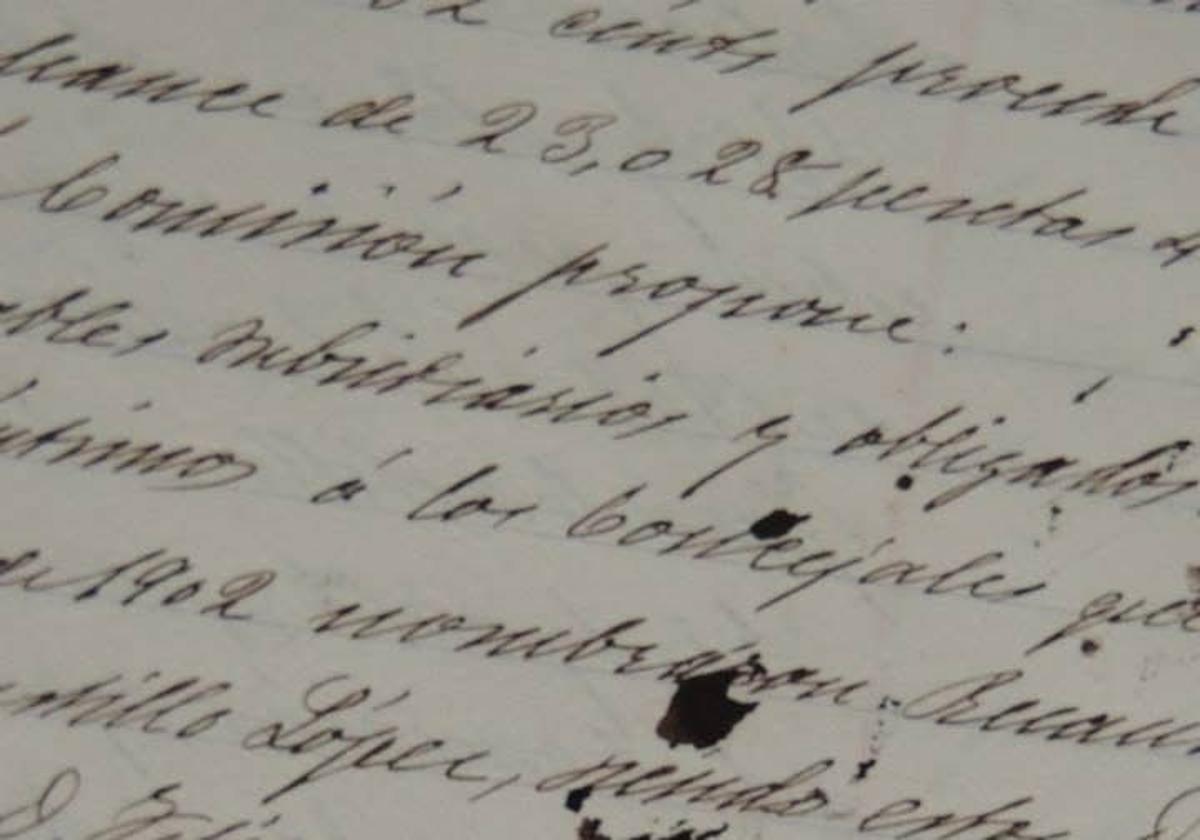 cénts procede
alcance de 23,028 pesetas
Comisión propone:
ables subsidiarios y obligados
á los Concejales que
de 1902 nombraron Recau
stillo López, siendo este
D.